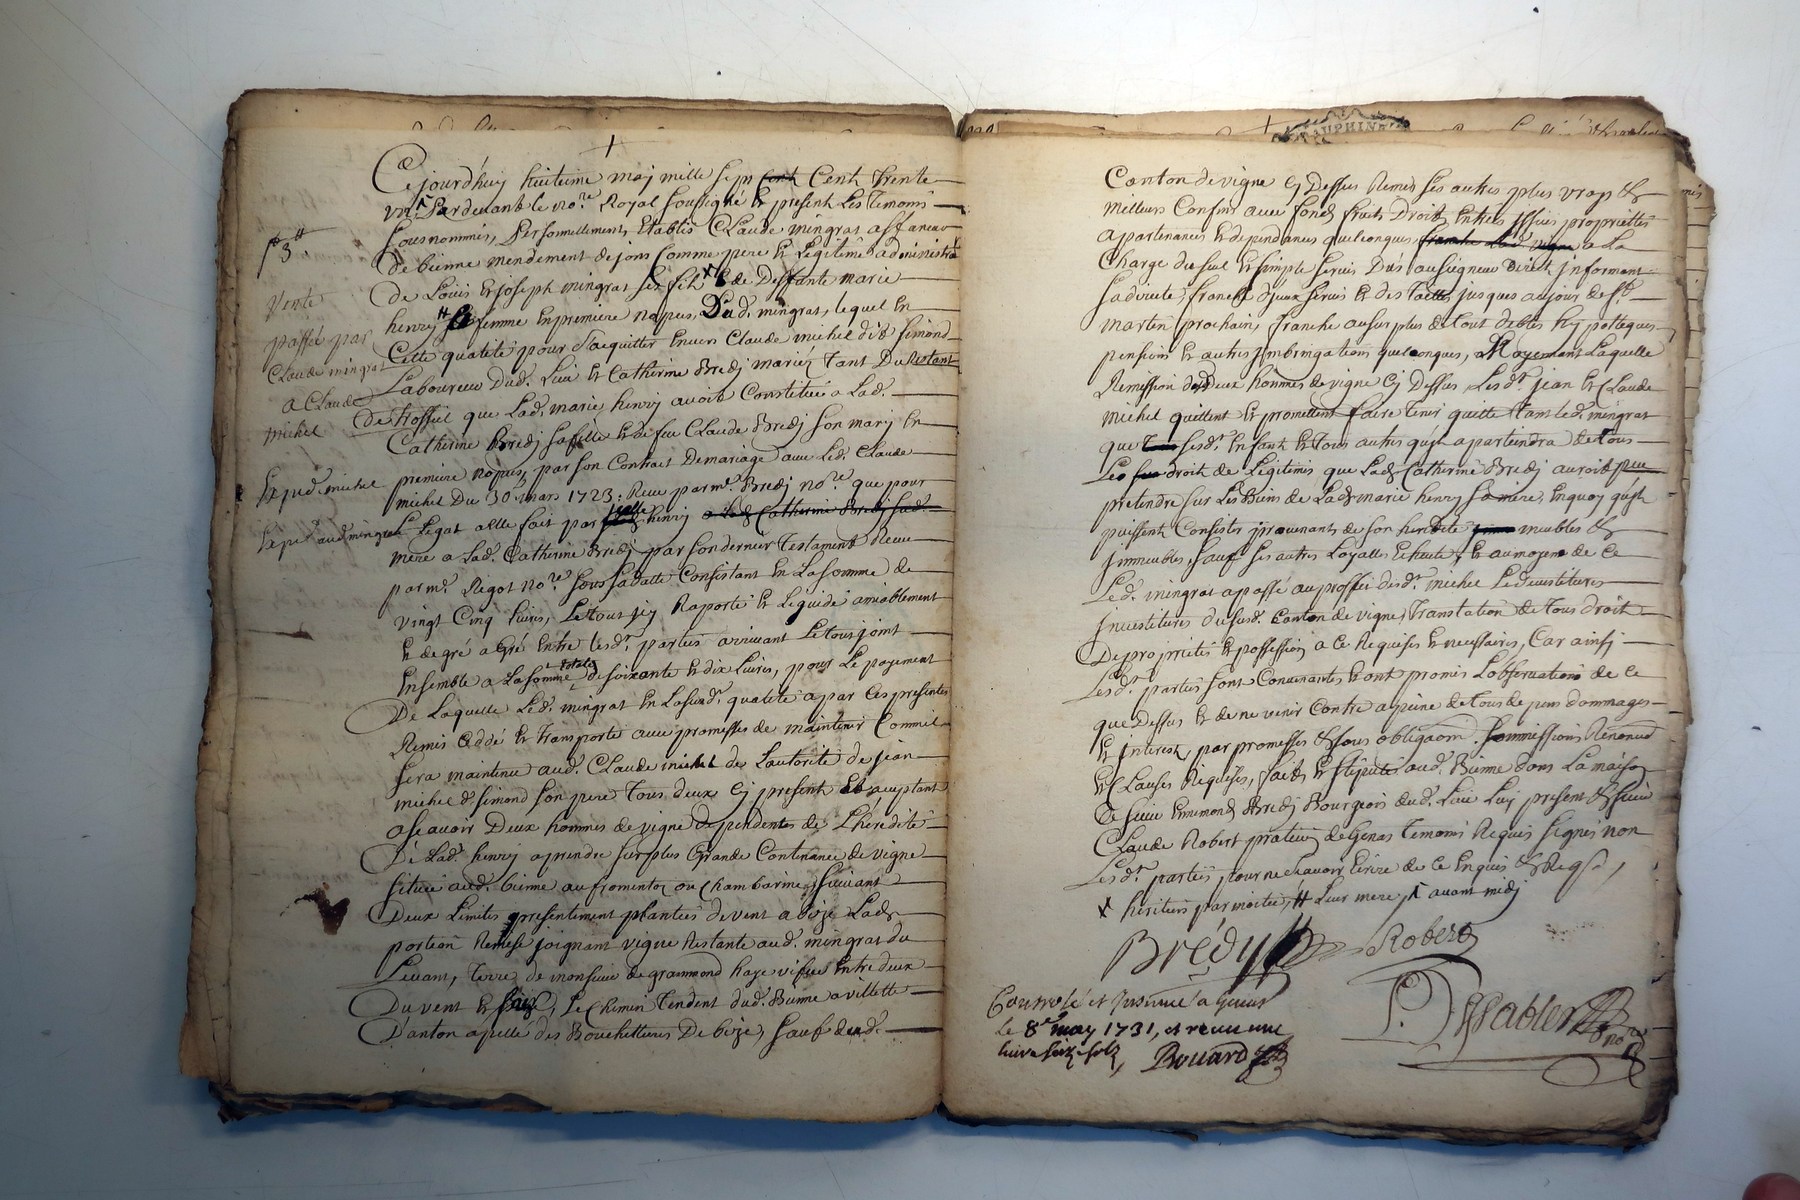 Vente
passée par
Claude mingrat
a Claude
michel
Exped. michel
Ce jourd'huy huitieme maj mille sept Cent Trente
vn Pardevant le no.re Royal soussigné & present Les Temoins
sousnommés, Personnellement Etablis Claude mingrat affaneur
de bienne mendement de jons Comme pere & Legitime administrat.
De Louis & joseph mingrat ses fils & de Deffante marie
henry sa femme En premiere nopces, Led. mingrat, lequel En
Cette qualité pour S'acquitter Envers Claude michel dit simond
Laboureur Dud. Lieu & Catherine Bredj mariés Tant Du Restant
De Troffeil que Lad. marie henry avoit Constitué a Lad.
Catherine Bredj sa fille & de feu Claude Bredj son mary En
premiere nopces, par son Contrat De mariage avec Led. Claude
michel Du 30 mars 1723. Receu par m.e Bredj no.re que pour
Le Legat a elle fait par lade henry a Lad. Catherine Bredj sad.
mere a Lad. Catherine Bredj par son dernier Testament Receu
par m.e Ragot no.re sous sa datte Consistant En La somme de
vingt Cinq livres, Le tout icy Raporté & Liquidé amiablement
& de gré a Gré Entre lesd. parties arrivant Le tout joint
Ensemble a La somme totale de soixante & dix Livres, pour Le payement
De Laquelle Led. mingrat En La susd. qualité a par Ces presentes
Remis Cedé & Transporté avec promesses de maintenir Comme il
sera maintenu aud. Claude michel de L'autorité de jean
michel d. simond son pere Tous deux Cj present & acceptant
a scavoir Deux hommes de vigne dependentes de L'heredité
De Lad. henry a prendre sur plus Grande Contenance de vigne
située aud. bienne au fromentoz ou Chambarine, suivant
Deux Limites presentement plantées de vent a bize Lad.
portion Remise joignant vigne Restante aud. mingrat du
Levant, Terre de monsieur de grammond haye vifve Entre deux
Du vent & bize, Le Chemin Tendent dud. Bienne a villette
D'anton apellé des Bouchetieres De bize, sauf dud.
Canton de vigne Cj Dessus Remis ses autres plus vrays &
meilleurs Confins avec fonds fruits Droits Entrées yssües proprietés
apartenances & dependances quelconques, franche lad. vigne a La
Charge du seul & simple servis Dû au seigneur Direct informant
sa directe, franche d'jceux servis & des Tailles jusques au jour de st.
martin prochain, franche au surplus de tout debtes hypotteques
pensions & autres jmbringations quelconques, Moyennant Laquelle
Remission desd. deux hommes de vigne Cj Dessus Lesd. jean & Claude
michel quittent & promettent faire Tenir quitte Tant led. mingrat
que sesd. Enfants & Tous autres qu'jl apartiendra de tous
Les droit de Legitimes que Lad. Catherine Bredj auroit peu
pretendre sur Les Biens de Lad. marie henry sa mere, Enquoy qu'jls
puissent Consister provenants de son heredité meubles &
jmmeubles, sauf ses autres Loyalles Echeute, & au moyen de Ce
Led. mingrat a passé au proffit desd. michel Les devestitures
jnvestitures du susd. Canton de vigne Translation de Tous droit
De proprietés & possession a Ce Requises & necessaires, Car ainsi
Lesd. parties sont Convenantes & ont promis L'observation de Ce
que Dessus & de ne venir Contre a peine de tous depens dommages
& interest, par promesses & sous obligaon. soumissions Renonciat.
& Clauses Requises, fait & stipulé aud. Bienne dans La maison
De sieur Ennemond Bredj Bourgeois dud. Lieu Luy present & sieur
Claude Robert praticien de Genas Temoins Requis signés non
Lesd. parties pour ne scavoir Ecrire de Ce Enquis & Requis,
x heritiers par moitié, # Leur mere, avant midj
Brédy Robert
Controlé et Insinué a
le 8e may 1731, et receu une
livre seize sols, Bouard
P. Dessabler nore